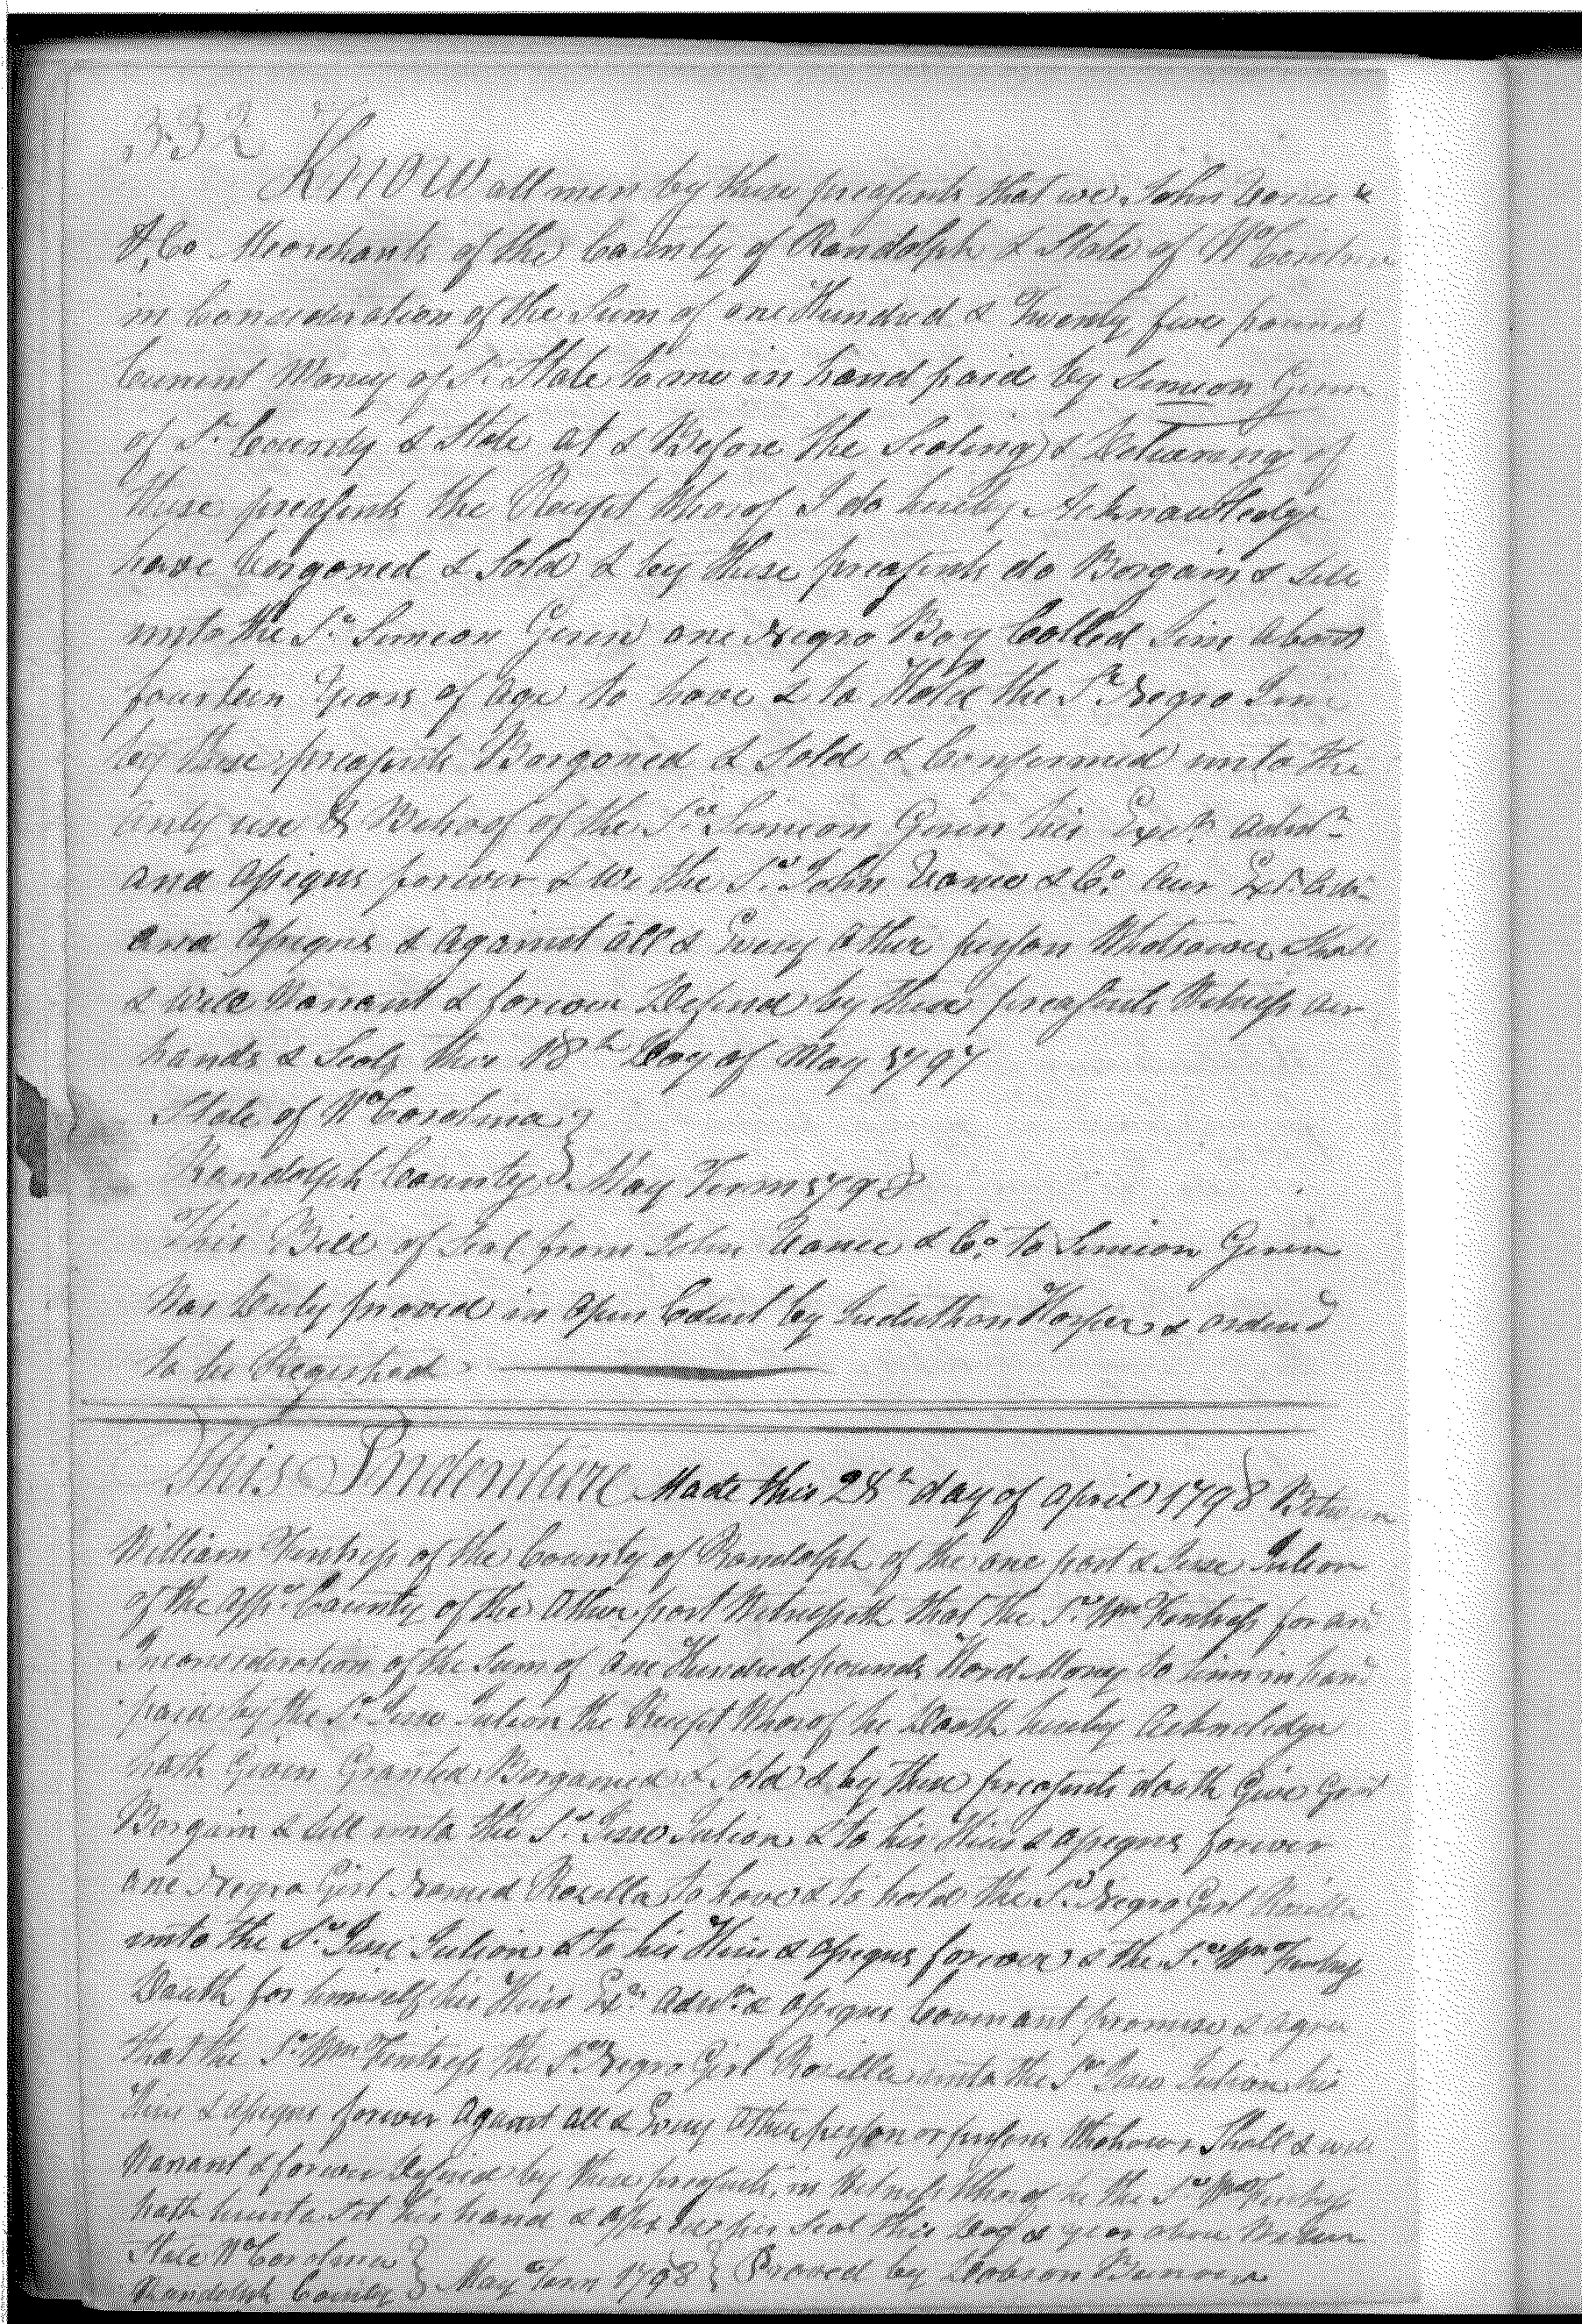 332
Know all men by these presents that we John Vance &
& Co Merchants of the County of Randolph & State of No Carolina
in Consideration of the Sum of one Hundred & Twenty five pounds
Current Money of Sd State to me in hand paid by Simeon Geren
of Sd County & State at & Before the Sealing & Delivering of
these presents the Receipt Whareof I do hereby Acknowledge
have bargoned & Sold & by these presents do Bargain & sell
unto the Sd Simeon Geren one Negro Boy Called Jim about
fourteen years of age to have & to Hold the Sd Negro Jim
by these presents Borgoned & Sold & Confirmed unto the
only use & Behoof of the Sd Simeon Geren his Exrs Admrs
and Assigns forever & We the Sd John Vance & Co. our Exr
and Assigns & Against all & Every other person Whatsoever Shall
& will Warrant & forever Defend by these presents Witness our
hands & Seals this 18th Day of May 1797
State of No Carolina }
Randolph County } May Term 1798
This Bill of Seal from John Vance & Co. to Simeon Geren
Was Duly proved in open Court by Jeduthan Harper & ordered
to be Registred
This Indenture Made this 28th day of April 1798 Between
William Fentriss of the County of Randolph of the one part & Jesse Julion
of the Affsd County of the Other part Witnesseth that the Sd Wm Fentress for and
Inconsideration of the Sum of one Hundred pounds Hard Money to him in hand
paid by the Sd Jesse Julion the Receipt Whareof he Doath hereby Acknoledge
hath Given Granted Borgained & Sold & by these presents doath Give Grant
Borgain & sell unto the Sd Jesse Julion & to his Heirs & assigns forever
one Negro Girl Named Rozella to have & to hold the Sd Negro Girl Rozilla
unto the Sd Jesse Julion & to his Heirs & assigns forever & the Sd Wm Fentress
Doath for himself his Heirs Exrs Admrs & assigns Covenant promise & agree
that the Sd Wm Fentress the Sd Negro Girl Rozilla unto the Sd Jesse Julion his
Heirs & assigns forever Against all & Every Other person or persons Whatsoever Shall & will
Warrant & forever Defend by these presents, in Witness Whareof he the Sd Wm Fentress
hath hereunto set his hand & his Seal this Day & year above Written
State No Carolina }
Randolph County } May Term 1798 } Proved by